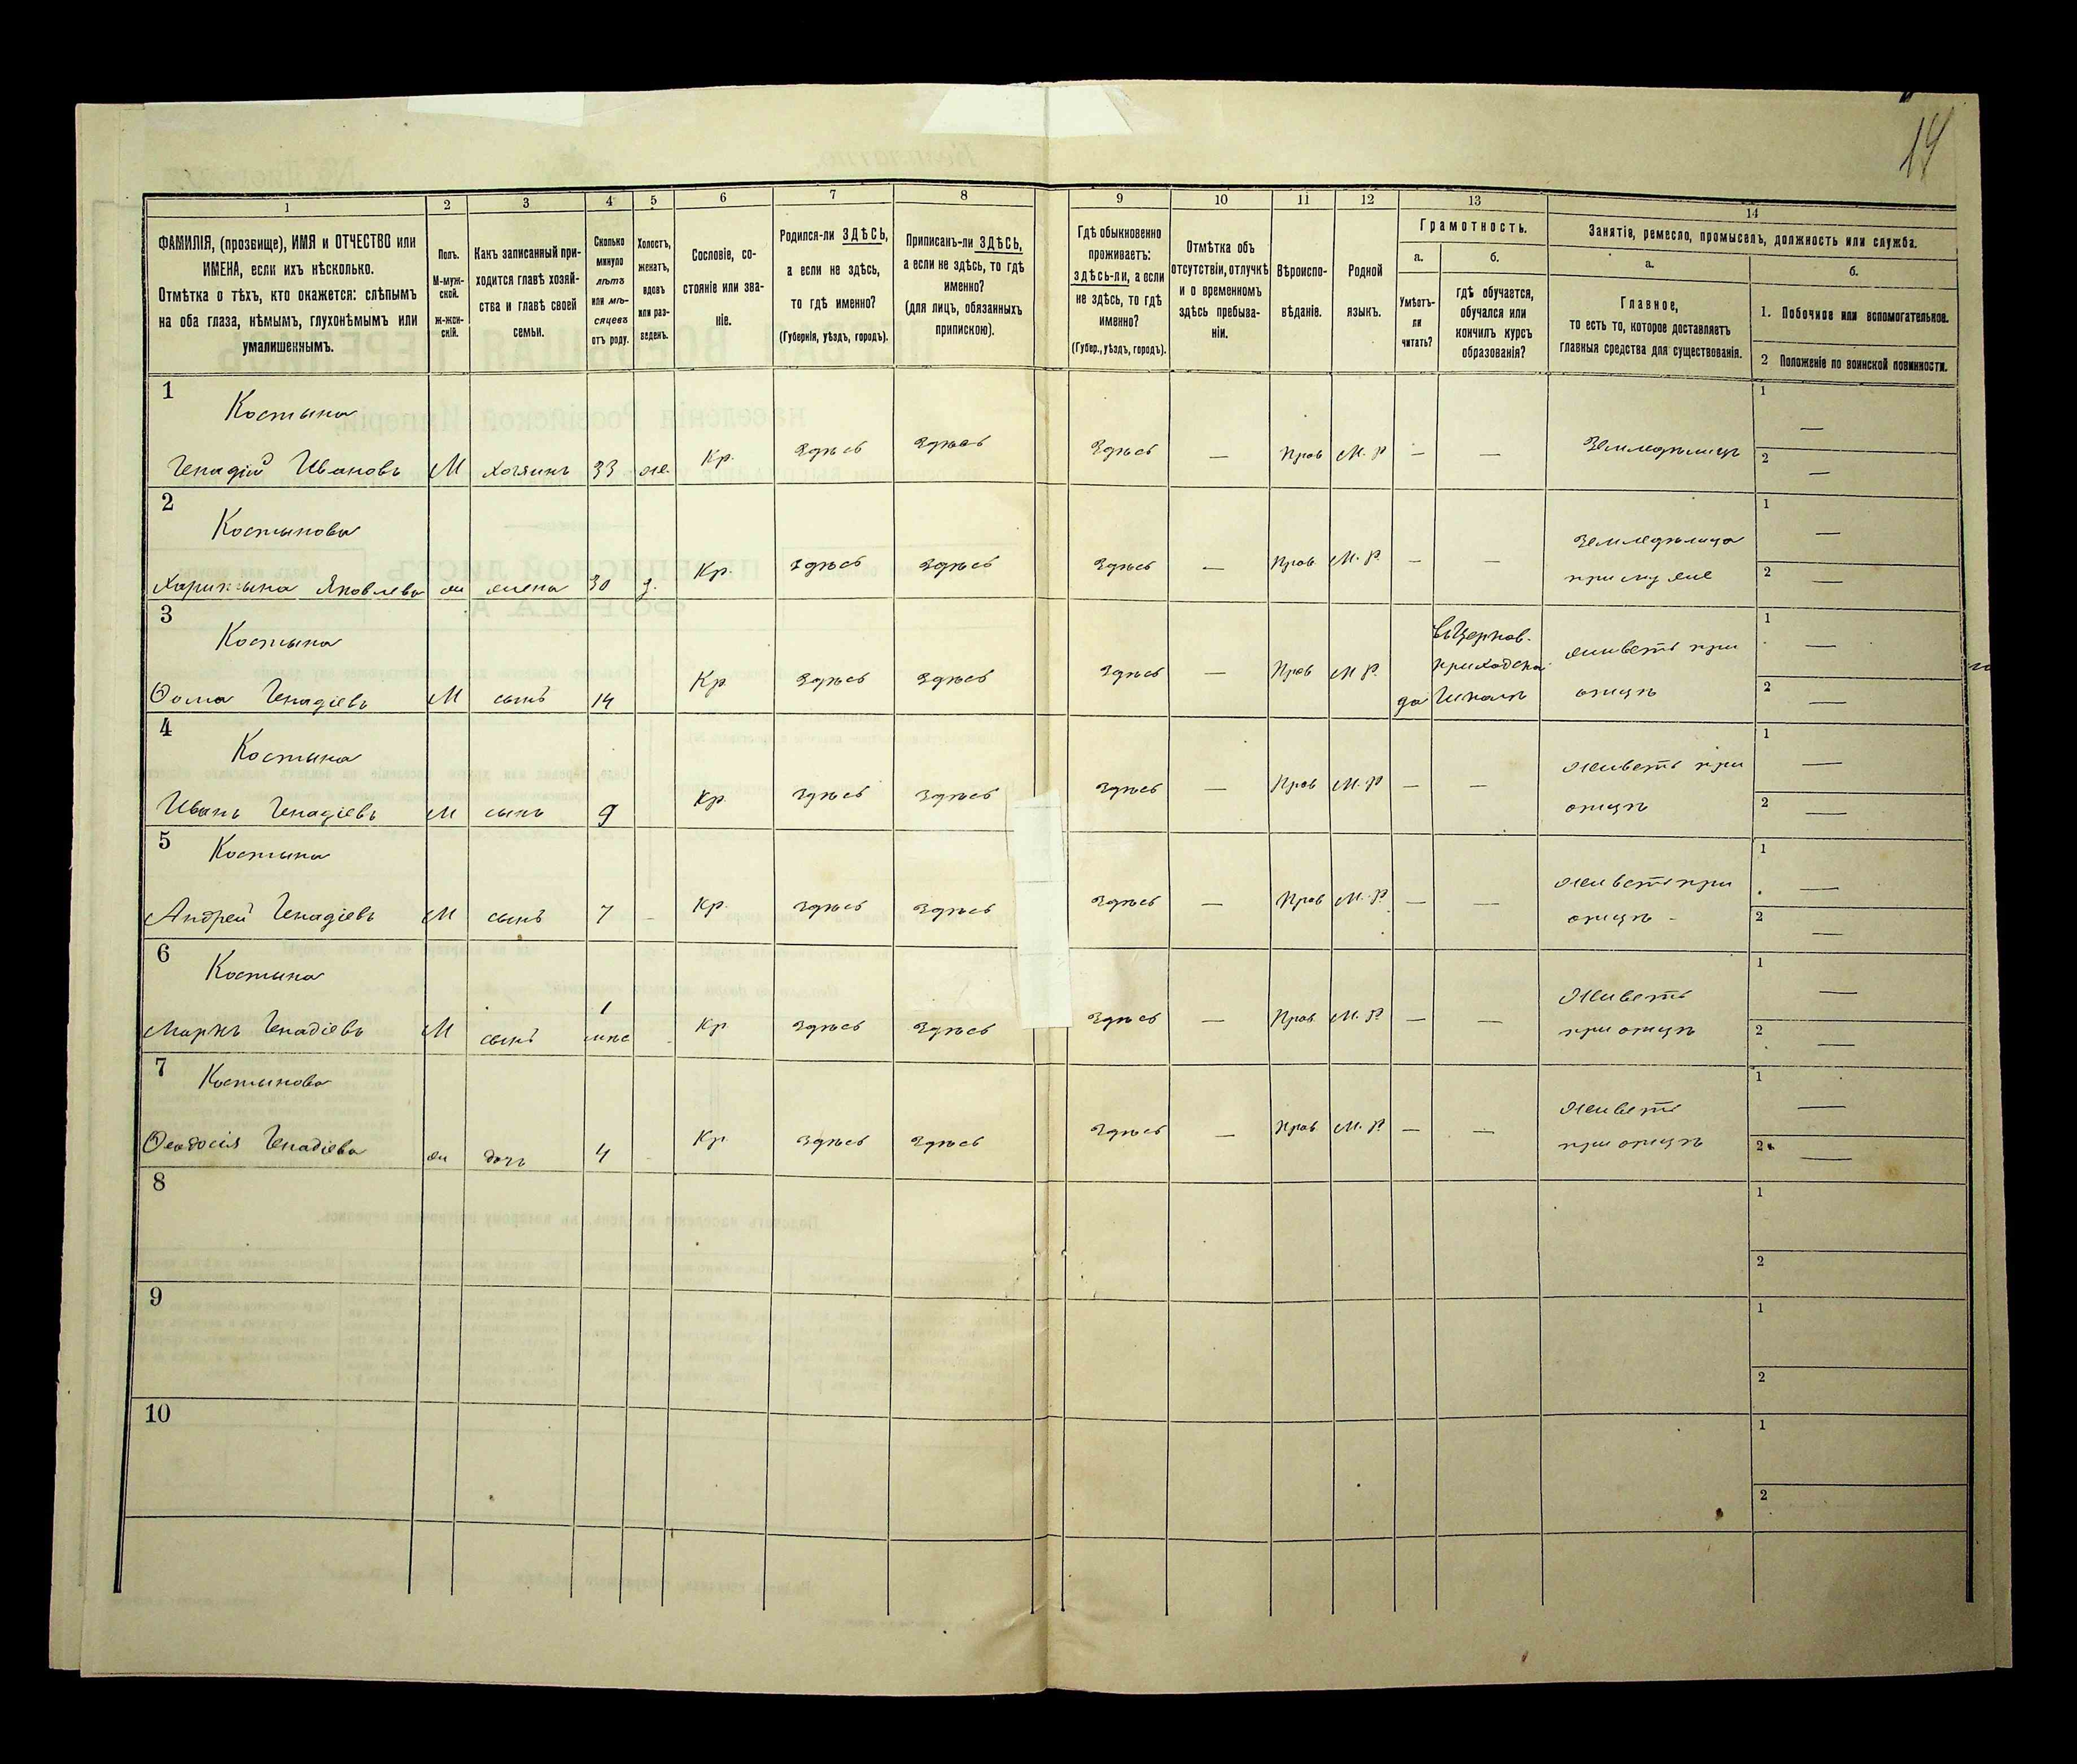 14
1
2
3
4
5
6
7
8
9
10
11
12
13
14
ФАМИЛІЯ, (прозвище), ИМЯ и ОТЧЕСТВО или
ИМЕНА, если ихъ нѣсколько.
Отмѣтка о тѣхъ, кто окажется: слѣпымъ
на оба глаза, нѣмымъ, глухонѣмымъ или
умалишеннымъ.
Полъ.
М-муж-
ской.
Ж-жен-
скій.
Какъ записанный при-
ходится главѣ хозяй-
ства и главѣ своей
семьи.
Сколько
минуло
лѣтъ
или мѣ-
сяцевъ
отъ роду.
Холостъ,
женатъ,
вдовъ
или раз-
веденъ.
Сословіе, со-
стояніе или зва-
ніе.
Родился-ли ЗДѢСЬ,
а если не здѣсь,
то гдѣ именно?
(Губернія, уѣздъ, городъ).
Приписанъ-ли ЗДѢСЬ,
а если не здѣсь, то гдѣ
именно?
(для лицъ, обязанныхъ
припискою).
Гдѣ обыкновенно
проживаетъ:
здѣсь-ли, а если
не здѣсь, то гдѣ
именно?
(Губер., уѣздъ, городъ).
Отмѣтка объ
отсутствіи, отлучкѣ
и о временномъ
здѣсь пребыва-
ніи.
Вѣроиспо-
вѣданіе.
Родной
языкъ.
Грамотность.
а.
Умѣетъ-
ли
читать?
б.
гдѣ обучается,
обучался или
кончилъ курсъ
образованія?
Занятіе, ремесло, промыселъ, должность или служба.
а.
Главное,
то есть то, которое доставляетъ
главныя средства для существованія.
б.
1. Побочное или вспомогательное.
2 Положеніе по воинской повинности.
1
Костына
Генадій Ивановъ М хозяинъ 33 же. Кр. Здѣсь Здѣсь Здѣсь — Прав М. Р — — Земледѣлецъ 1 — 2 —
2
Костынова
Яковлева ж жена 30 з. Кр. Здѣсь Здѣсь Здѣсь — Прав М. Р. — — Земледѣлица
при мужѣ 1 — 2 —
3
Костына
Ѳома Генадіевъ М сынъ 14 Кр. Здѣсь Здѣсь Здѣсь — Прав М Р. да
въ Церков.
приходско
Школѣ
живетъ при
отцѣ 1 — 2 —
4
Костына
Иванъ Генадіевъ М сынъ 9 Кр. Здѣсь Здѣсь Здѣсь — Прав М. Р — — Живетъ при
отцѣ 1 — 2 —
5
Костына
Андрей Генадіевъ М сынъ 7 — Кр. Здѣсь Здѣсь Здѣсь — Прав М. Р — — Живетъ при
отцѣ 1 — 2 —
6
Костына
Маркъ Генадіевъ М сынъ 1
мѣс Кр Здѣсь Здѣсь Здѣсь — Прав М. Р — — Живетъ
при отцѣ 1 — 2 —
7
Костынова
Ѳеодосія Генадіева ж дочь 4 Кр. Здѣсь Здѣсь Здѣсь — Прав М. Р — — Живетъ
при отцѣ 1 — 2 —
8
1
2
9
1
2
10
1
2